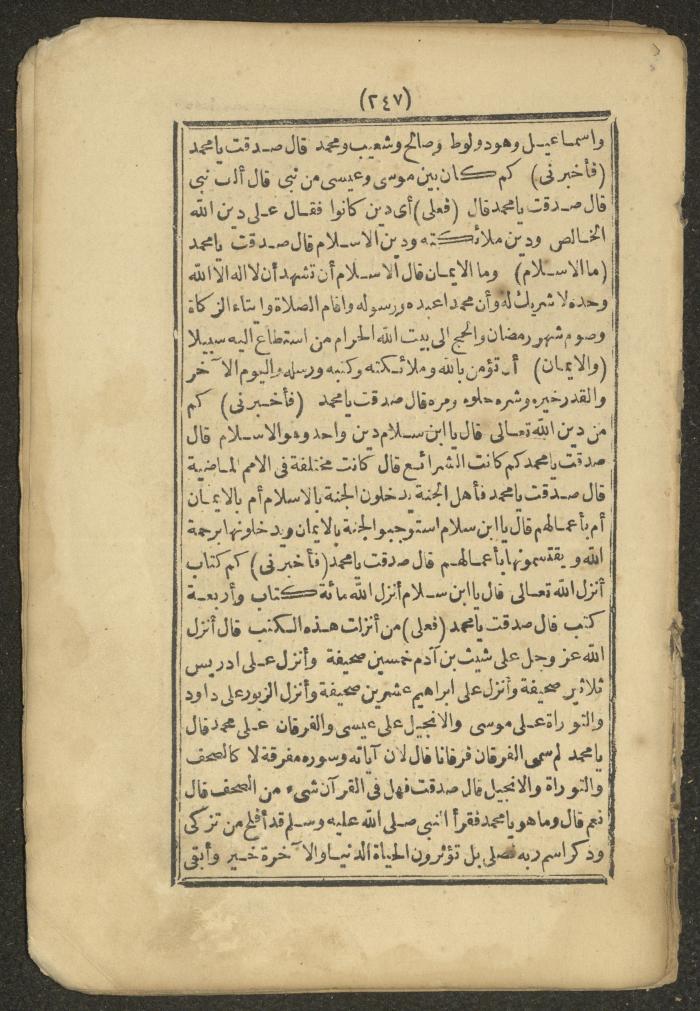 (٢٤٧)
واسماعيل وهود ولوط وصالح وشعيب ومحمد قال صدقت يا محمد
(فأخبرنى) كم كان بين موسى وعيسى من نبى قال ألف نبى
قال صدقت يا محمد قال (فعلى) أى دين كانوا فقال على دين الله
الخالص ودين ملائكته ودين الاسلام قال صدقت يا محمد
(ما الاسلام) وما الايمان قال الاسلام أن تشهد أن لا اله الا الله
وحده لا شريك له وأن محمدا عبده ورسوله واقام الصلاة وايتاء الزكاة
وصوم شهر رمضان والحج الى بيت الله الحرام من استطاع اليه سبيلا
(والايمان) أن تؤمن بالله وملائكته وكتبه ورسله واليوم الآخر
والقدر خيره وشره حلوه ومره قال صدقت يا محمد (فأخبرنى) كم
من دين الله تعالى قال يا ابن سلام دين واحد وهو الاسلام قال
صدقت يا محمد كم كانت الشرائع قال كانت مختلفة فى الامم الماضية
قال صدقت يا محمد فأهل الجنة يدخلون الجنة بالاسلام أم بالايمان
أم بأعمالهم قال يا ابن سلام استوجبوا الجنة بالايمان ويدخلونها برحمة
الله ويقتسمونها بأعمالهم قال صدقت يا محمد (فأخبرنى) كم كتاب
أنزل الله تعالى قال يا ابن سلام أنزل الله مائة كتاب وأربعة
كتب قال صدقت يا محمد (فعلى) من أنزلت هذه الكتب قال أنزل
الله عز وجل على شيث بن آدم خمسين صحيفة وأنزل على ادريس
ثلاثين صحيفة وأنزل على ابراهيم عشرين صحيفة وأنزل الزبور على داود
والتوراة على موسى والانجيل على عيسى والفرقان على محمد قال
يا محمد لم سمى الفرقان فرقانا قال لان آياته وسوره مفرقة لا كالصحف
والتوراة والانجيل قال صدقت فهل فى القرآن شىء من الصحف قال
نعم قال وما هو يا محمد فقرأ النبى صلى الله عليه وسلم قد أفلح من تزكى
وذكر اسم ربه فصلى بل تؤثرون الحياة الدنيا والآخرة خير وأبقى